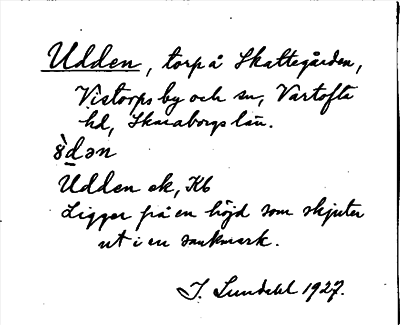 Udden, torp å Skattegården,
Vistorps by och sn, Vartofta
hd, Skaraborgs län.
8̀dən
Udden ek, Kb
Ligger på en höjd som skjuter
ut i en sankmark.
I. Lundahl 1927.